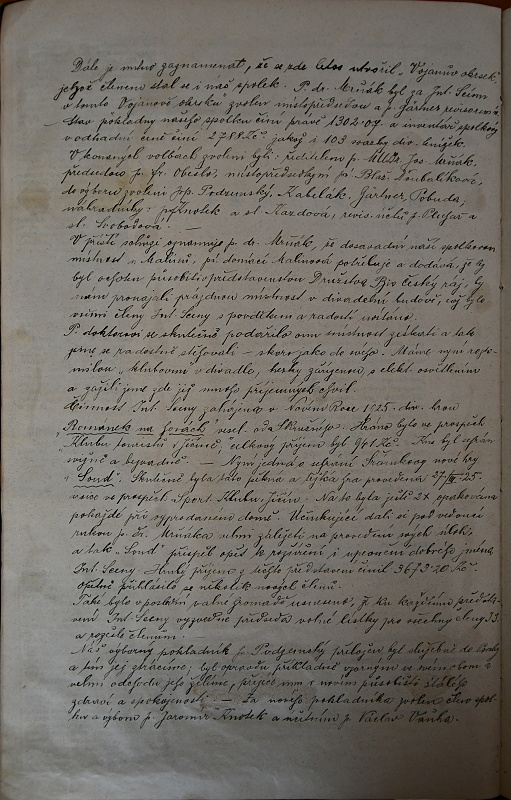 Dále je nutno zaznamenat, že se zde letos utvořil „Vojanův okrsek"
jehož členem stal se i náš spolek. P. dr. Mrňák byl za Int. Scenu
v tomto Vojanově okrsku zvolen místopředsedou a p. Gärtner revisorem
Stav pokladny našeho spolku činí právě 1302·07 a inventář spolkový
v odhadní ceně činí 2788 Kč jakož i 103 svazky div. knížek.
V konaných volbách zvoleni byli: ředitelem p. JUDr. Jos. Mrňák,
předsedou p. Fr. Obeslo, místopředsedkyní pí
do výboru zvoleni pp. Podzemský, Kabelák, Gärtner, Pobuda,
náhradníky: p. Knotek a sl. Kazdová, revis. účtů p. Pluhař a
sl. Svobodová. —
V příští schůzi oznamuje p. dr. Mrňák, že dosavadní naši spolkovou
místnost u Malinů, pí domácí Malinová potřebuje a dodává, že by
byl ochoten působiti v představenstvu Družstva Bio Český ráj, by
nám pronajali prázdnou místnost v divadelní budově, což bylo
všemi členy Int. Sceny s povděkem a radostí uvítáno.
P. doktorovi se skutečně podařilo onu místnost získati a tak
jsme se radostně stěhovali – skoro jako do svého. Máme nyní
milou klubovnu v divadle, hezky zařízenou, s elektr. osvětlením
a zažili jsme zde již mnoho příjemných chvil.
Činnost Int. Sceny zahájena v Novém Roce 1925. div. hrou
Románek na horách, vesel. od Skružného. Hráno bylo ve prospěch
„Klubu turistů v Jičíně", celkový příjem byl Kč. Kus byl
 a — Nyní jedná o sehrání Šrámkovy nové hry
„Soud". Skutečně byla tato pěkná a těžká hra provedena 27/III·25.
 ve prospěch Sport. Klubu Jičín. Na to byla ještě 3x opakována
pokaždé při vyprodaném domě. Účinkující dali si pod vedoucí
rukou p. Dr. Mrňáka velmi záležeti na provedení svých úloh,
a tak „Soud" přispěl opět k rozšíření i upevnění dobrého jména
Int. Sceny. Hrubý příjem z těchto představení činil 3673·20 Kč.
Opětně přihlásilo se několik nových členů.
Také bylo v poslední valné hromadě usneseno, že ku každému předsta-
vení Int. Sceny vyzvedne předseda volné lístky pro všechny členy
a rozešle členům. —
Náš výborný pokladník p. Podzemský přeložen byl služebně do
a tím jej ztrácíme; byl opravdu příkladně ve svém oboru a
velmi odchodu jeho, přejeme mu v novém působišti stálého
zdraví a spokojenosti. — Za nového pokladníka zvolen člen spol-
ku a výboru p. Jaromír Knotek a účetním p. Václav Vaňka.